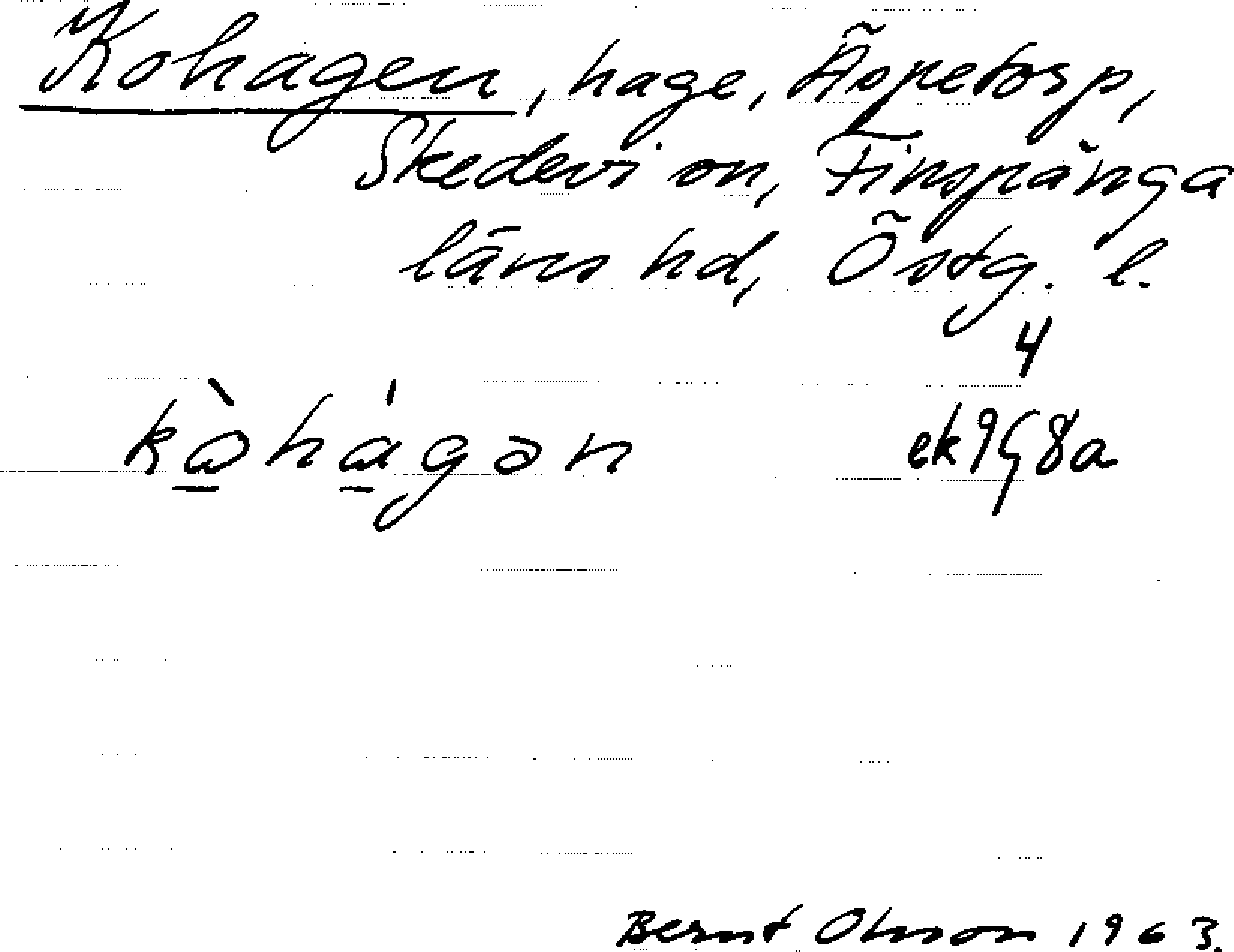 Kohagen, hage, Äspetorp,
Skedevi sn, Finspånga
läns hd, Östg. l.
4
kὼhágən ek9G8a
Bernt Olsson 1963.